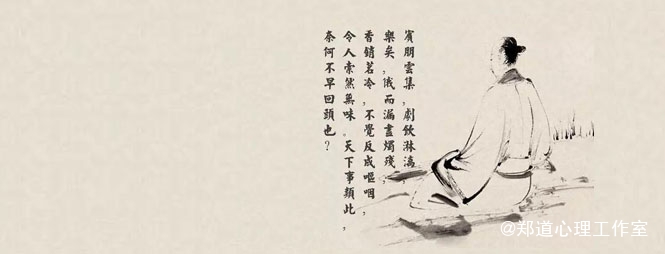 賓朋雲集,劇飲淋漓
樂矣,俄而漏盡燭殘,
香銷茗冷,不覺反成嘔咽,
令人索然無味。天下事類此,
奈何不早回頭也?
@郑道心理工作室